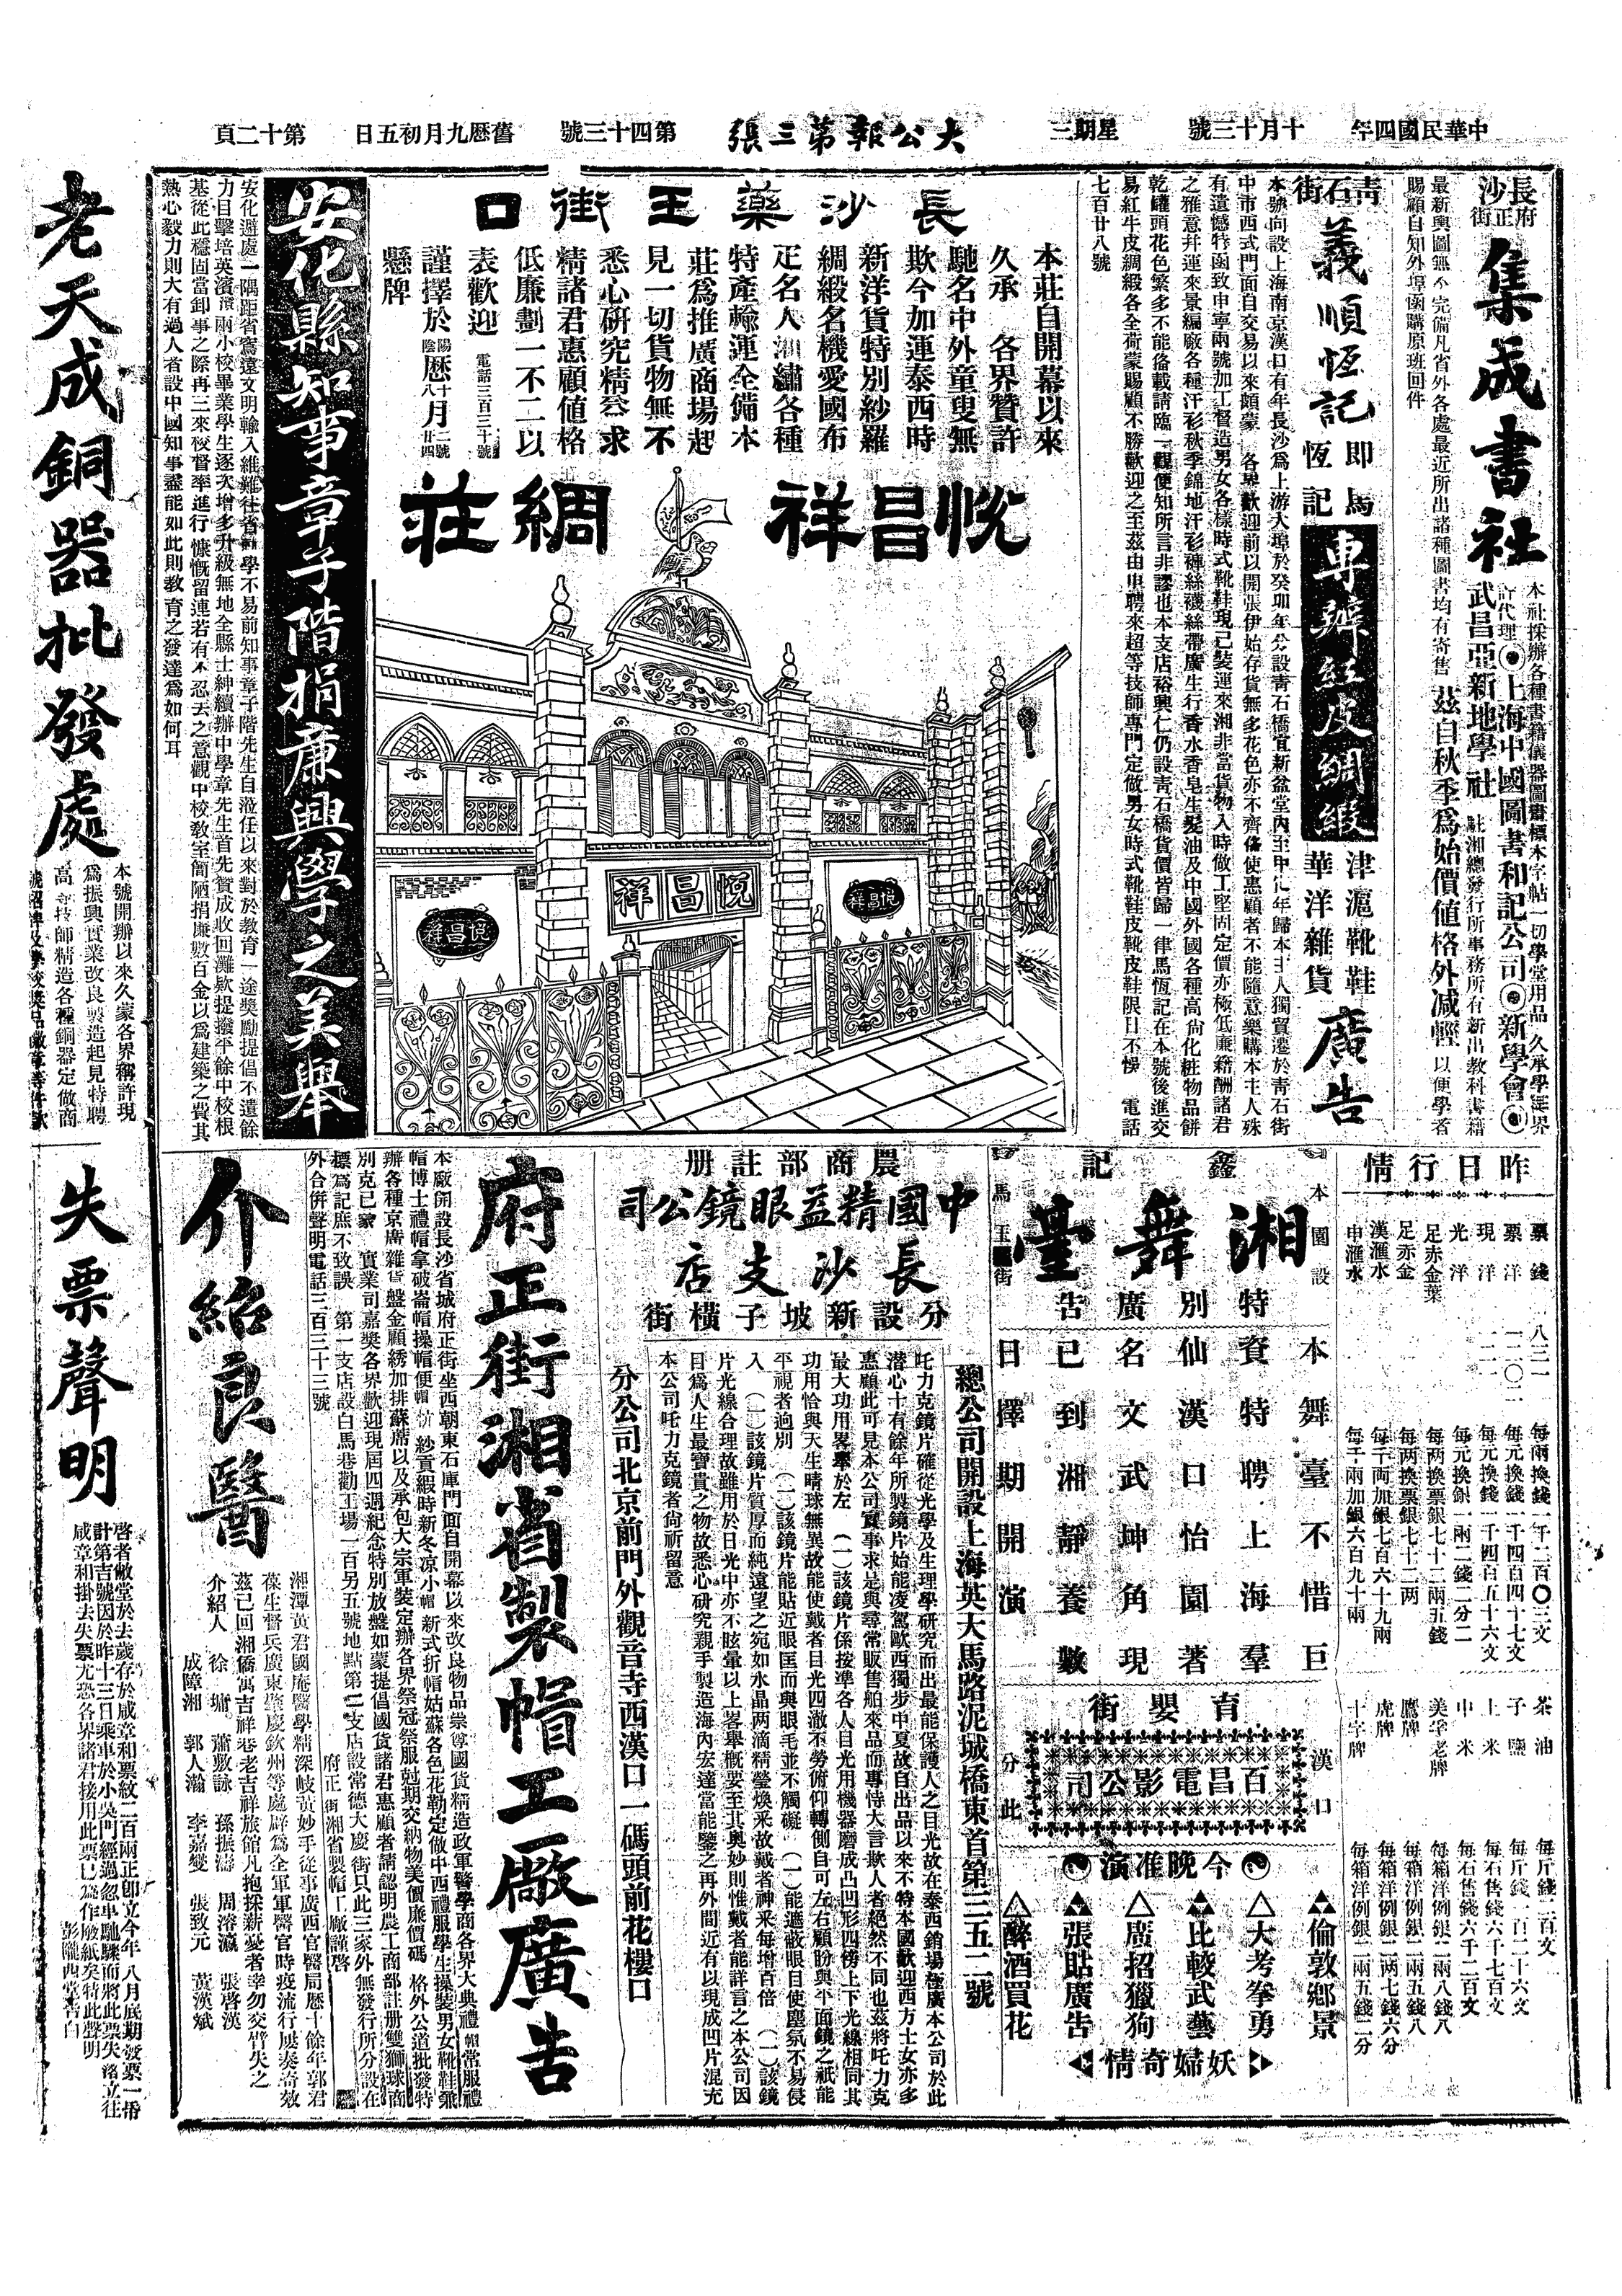 中華民國四年
十月十三號
星期三
大公報第三張
第四十三號
舊歷九月初五日
第十二頁
長沙府正街
集成書社
本社採辦各種書籍儀器圖畫標本字帖一切學堂用品久承學廷界
許代理◉上海中國圖書和記公司◉新學會◉
武昌亞新地學社
駐湘總發行所事務所有新出教科書籍
茲自秋季為始價值格外減輕以便學者
最新輿圖無不完備凡省外各處最近所出諸種圖書均有寄售
賜顧自知外埠函購原班回件
青石街
義順恆記
即馬恆記
專辦紅皮綢緞
津滬靴鞋
華洋雜貨
廣告
本號向設上海南京漢口有年長沙為上游大埠於癸卯年分設青石橋宜新盆堂內至甲
年歸本主人獨資遷於青石街
中市西式門面自交易以來頗蒙 各界歡迎前以開張伊始存貨無多花色亦不齊俻使惠顧者不能隨意樂購本主人殊
有遺憾特函致申寧兩號加工督造男女各樣時式靴鞋現已裝運來湘非當貨物入時做工堅固定價亦極低廉藉酬諸君
之雅意幷運來景綸廠各種汗衫秋季錦地汗衫褲絲襪絲帶廣生行香水香皂生髮油及中國外國各種高尙化粧物品餅
乾罐頭花色繁多不能俻載請臨一觀便知所言非謬也本支店裕興仁仍設青石橋貨價皆歸一律馬恆記在本號後進交
易紅牛皮綢緞各全荷蒙賜顧不勝歡迎之至茲由申聘來超等技師專門定做男女時式靴鞋皮靴皮鞋限日不悞 電話
七百廿八號
長沙藥王街口
本莊自開幕以來
久承 各界贊許
馳名中外童叟無
欺今加運泰西時
新洋貨特別紗羅
綢緞名機愛國布
疋名人湘繡各種
特產輸運全備本
莊為推廣商場起
見一切貨物無不
悉心研究精益求
精諸君惠顧值格
低廉劃一不二以
表歡迎 電話三百三十號
謹擇於陽陰歷十八月二廿號四
懸牌
悅昌祥綢莊
悅昌祥
悅昌祥
悅昌祥
安化縣知事章子階捐廉興學之美舉
安化避處一隅距省窵遠文明輸入維難往省
學不易前知事章子階先生自涖任以來對於教育一途獎勵提倡不遺餘
力目擊培英濱
兩小校畢業學生逐次增多升級無地全縣士紳續辦中學章先生首先贊成收回灘欵提撥平餘中校根
基從此穩固當卸事之際再三來校督率進行慷慨留連若有不忍去之意觀中校教室簡陋捐廉數百金以為建築之費其
熱心毅力則大有過人者設中國知事盡能如此則教育之發達為如何耳
老天成銅器批發處
本號開辦以來久蒙各界稱許現
為振興實業改良製造起見特聘
高等技師精造各種銅器定做商
昨日行情
票錢 八三一 每兩換錢一千二百〇三文
票洋 一二〇二 每元換錢一千四百四十七文
現洋 一二一 每元換錢一千四百五十六文
光洋 每元換銀一兩二錢二分二
足赤金葉 每兩換票銀七十二兩五錢
足赤金 每两換票銀七十二两
漢滙水 每千両加銀七百六十九兩
申滙水 每千兩加銀六百九十兩
茶油 每斤錢二百文
子鹽 每斤錢一百二十六文
上米 每石售錢六千七百文
中米 每石售錢六千二百文
美孚老牌 每箱洋例銀二兩八錢八
鷹牌 每箱洋例銀二兩五錢八
虎牌 每箱洋例銀二两七錢六分
十字牌 每箱洋例銀二兩五錢二分
鑫記
湘舞臺
本園設
馬王街
特別廣告
本舞臺不惜巨
資特聘上海羣
仙漢口怡園著
名文武坤角現
已到湘靜養數
日擇期開演
育嬰街
百昌電影公司
漢口
分此
今晚准演
倫敦鄉景
大考拳勇
比較武藝
廣招獵狗
張貼廣告
醉酒買花
妖婦奇情
農商部註册
中國精益眼鏡公司
長沙支店
分設新坡子橫街
總公司開設上海英大馬路泥城橋東首第三五二號
吒力克鏡片確從光學及生理學研究而出最能保護人之目光故在泰西銷場極廣本公司於此
潜心十有餘年所製鏡片始能凌駕歐西獨步中夏故自出品以來不特本國歡迎西方士女亦多
惠顧此可見本公司實事求是與尋常販售舶來品而專恃大言欺人者絕然不同也茲將吒力克
最大功用畧舉於左 (一)該鏡片係按準各人目光用機器磨成凸凹形四傍上下光線相同其
功用恰與天生晴球無異故能使戴者目光四澈不勞俯仰轉側自可左右顧盼與平面鏡之祇能
平視者逈別 (一)該鏡片能貼近眼匡而與眼毛並不觸礙 (一)能遮蔽眼目使塵氛不易侵
入 (一)該鏡片質厚而純遠望之宛如水晶両滴精瑩煥釆故戴者神釆每增百倍 (一)該鏡
片光線合理故雖用於日光中亦不眩暈以上畧舉概要至其奧妙則惟戴者能詳言之本公司因
目為人生最寶貴之物故悉心研究親手製造海內宏達當能鑒之再外間近有以現成凹片混充
本公司吒力克鏡者尙祈留意
分公司北京前門外觀音寺西漢口一碼頭前花樓口
府正街湘省製帽工廠廣告
本廠開設長沙省城府正街坐西朝東石庫門面自開幕以來改良物品崇尊國貨精造政軍警學商各界大典禮帽常服禮
帽博士禮帽拿破崙帽操帽便帽
紗貢緞時新冬凉小帽新式折帽姑蘇各色花勒定做中西禮服學生操裝男女靴鞋兼
辦各種京廣雜貨盤金顧綉加排蘇蓆以及承包大宗軍裝定辦各界祭冠祭服尅期交納物美價廉價碼 格外公道批發特
別克已蒙 實業司嘉獎各界歡迎現屆四週紀念特別放盤如蒙提倡國貨諸君惠顧者請認明農工商部註册雙獅球商
標為記庶不致誤 第一支店設白馬巷勸工場一百另五號地點第二支店設常德大慶街只此三家外無發行所分設在
外合倂聲明電話三百三十三號
府正街湘省製帽工廠謹啓
介紹良醫
湘潭黃君國庵醫學精深歧黃妙手從事廣西官醫局歷十餘年郭君
葆生督兵廣東肇慶欽州等處辟為全軍軍醫官時疫流行屢奏奇效
茲已回湘僑寓吉祥巷老吉祥旅館凡抱採薪憂者幸勿交臂失之
介紹人 徐墉 蕭敷詠 孫振濤 周溶瀛 張啓漢
成障湘 郭人瀚 李嘉燮 張致元 黃漢斌
失票聲明
啓者敝堂於去歲存於咸章和票紋二百兩正卽立今年八月底期發票一帋
計第吉號因於昨十三日乘車於小吳門經過忽車馳驟而將此票失落立往
咸章和掛去失票尤恐各界諸君接用此票已為作廢紙矣特此聲明
彭隴西堂者白